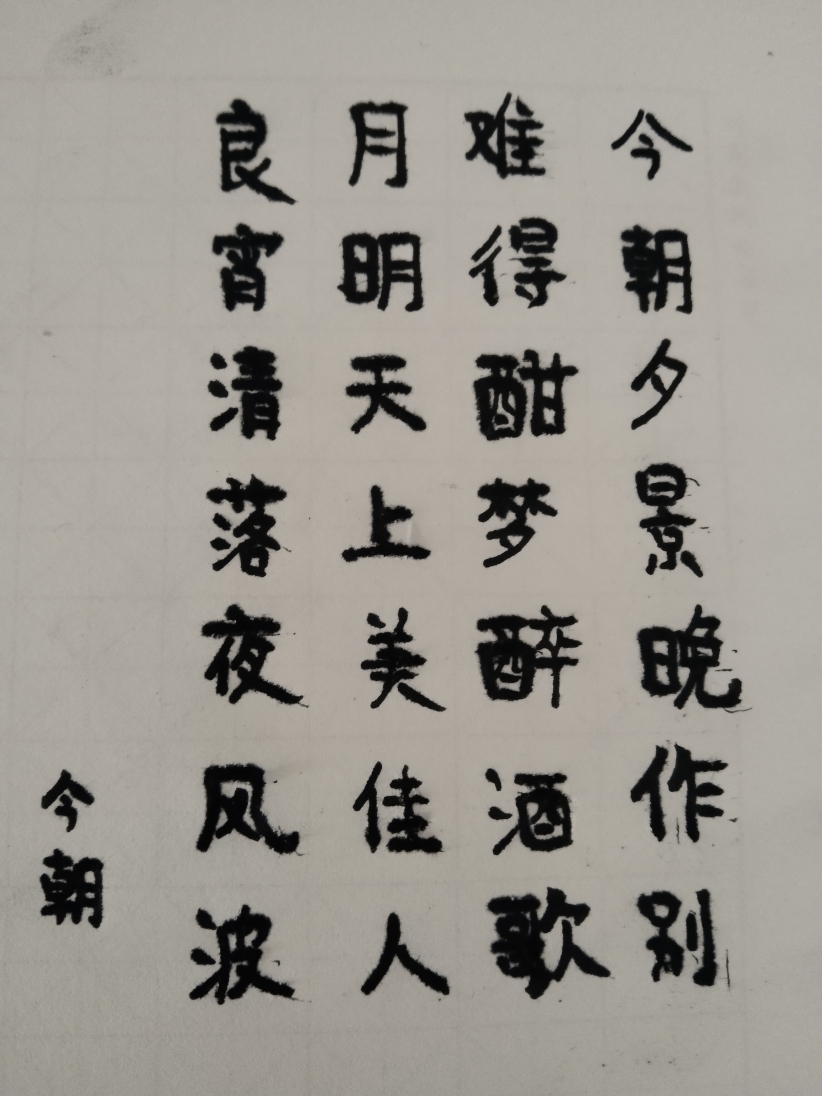 今朝夕景晚作别
难得酣梦醉酒歌
月明天上美佳人
良宵清落夜风波
今朝